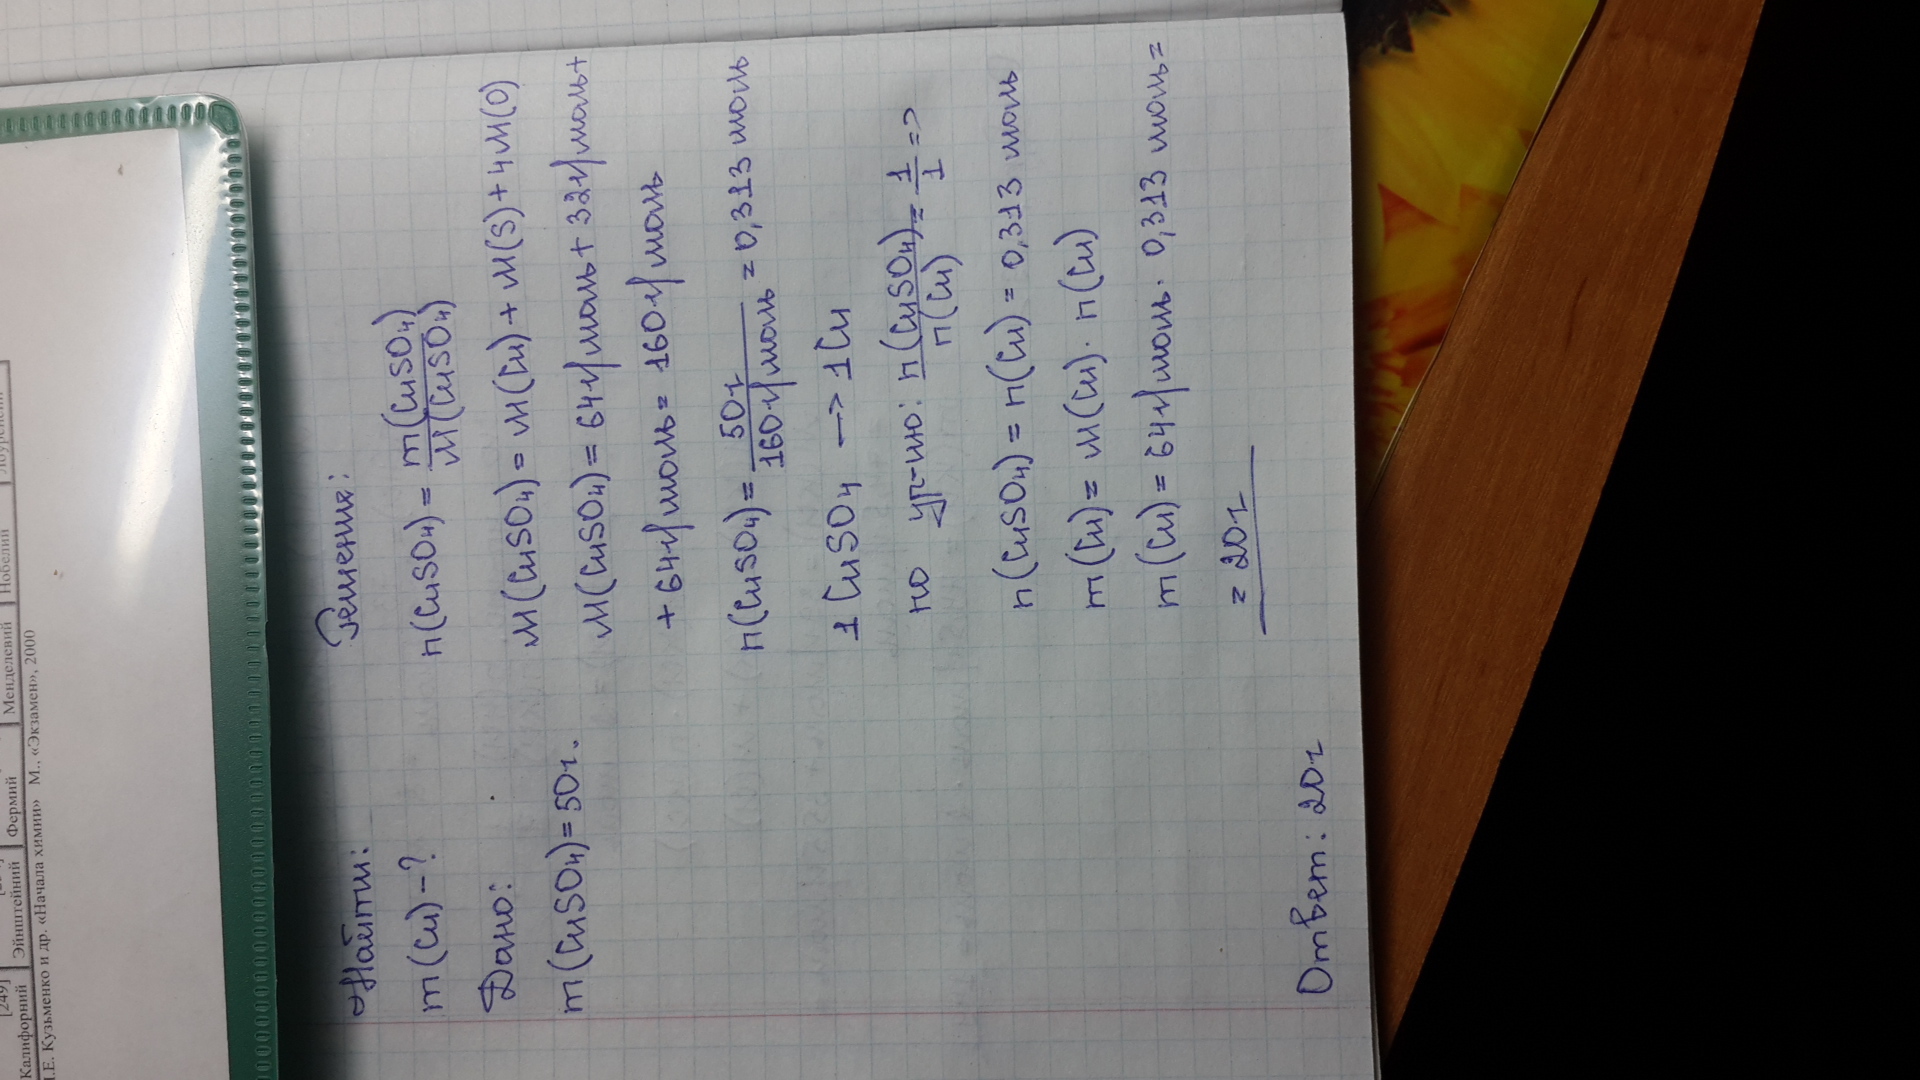 [249]
Калифорний Эйнштейний Фермий Менделевий Нобелий
И.Е. Кузьменко и др. «Начала химии» М., «Экзамен», 2000
Найти:
m(Cu)-?
Дано:
m(CuSO₄)=50г.
Решение:
n(CuSO₄) = m(CuSO₄)/M(CuSO₄)
M(CuSO₄)= M(Cu)+ M(S)+4M(O)
M(CuSO₄)= 64г/моль+32г/моль+
+ 64г/моль= 160г/моль
n(CuSO₄)= 50г/160г/моль = 0,313 моль
1 CuSO₄ —> 1 Cu
по ур-ию: n(CuSO₄)/n(Cu) = 1/1 =>
n(CuSO₄)= n(Cu)= 0,313 моль
m(Cu)= M(Cu)· n(Cu)
m(Cu)= 64г/моль· 0,313 моль=
= 20г
Ответ: 20г